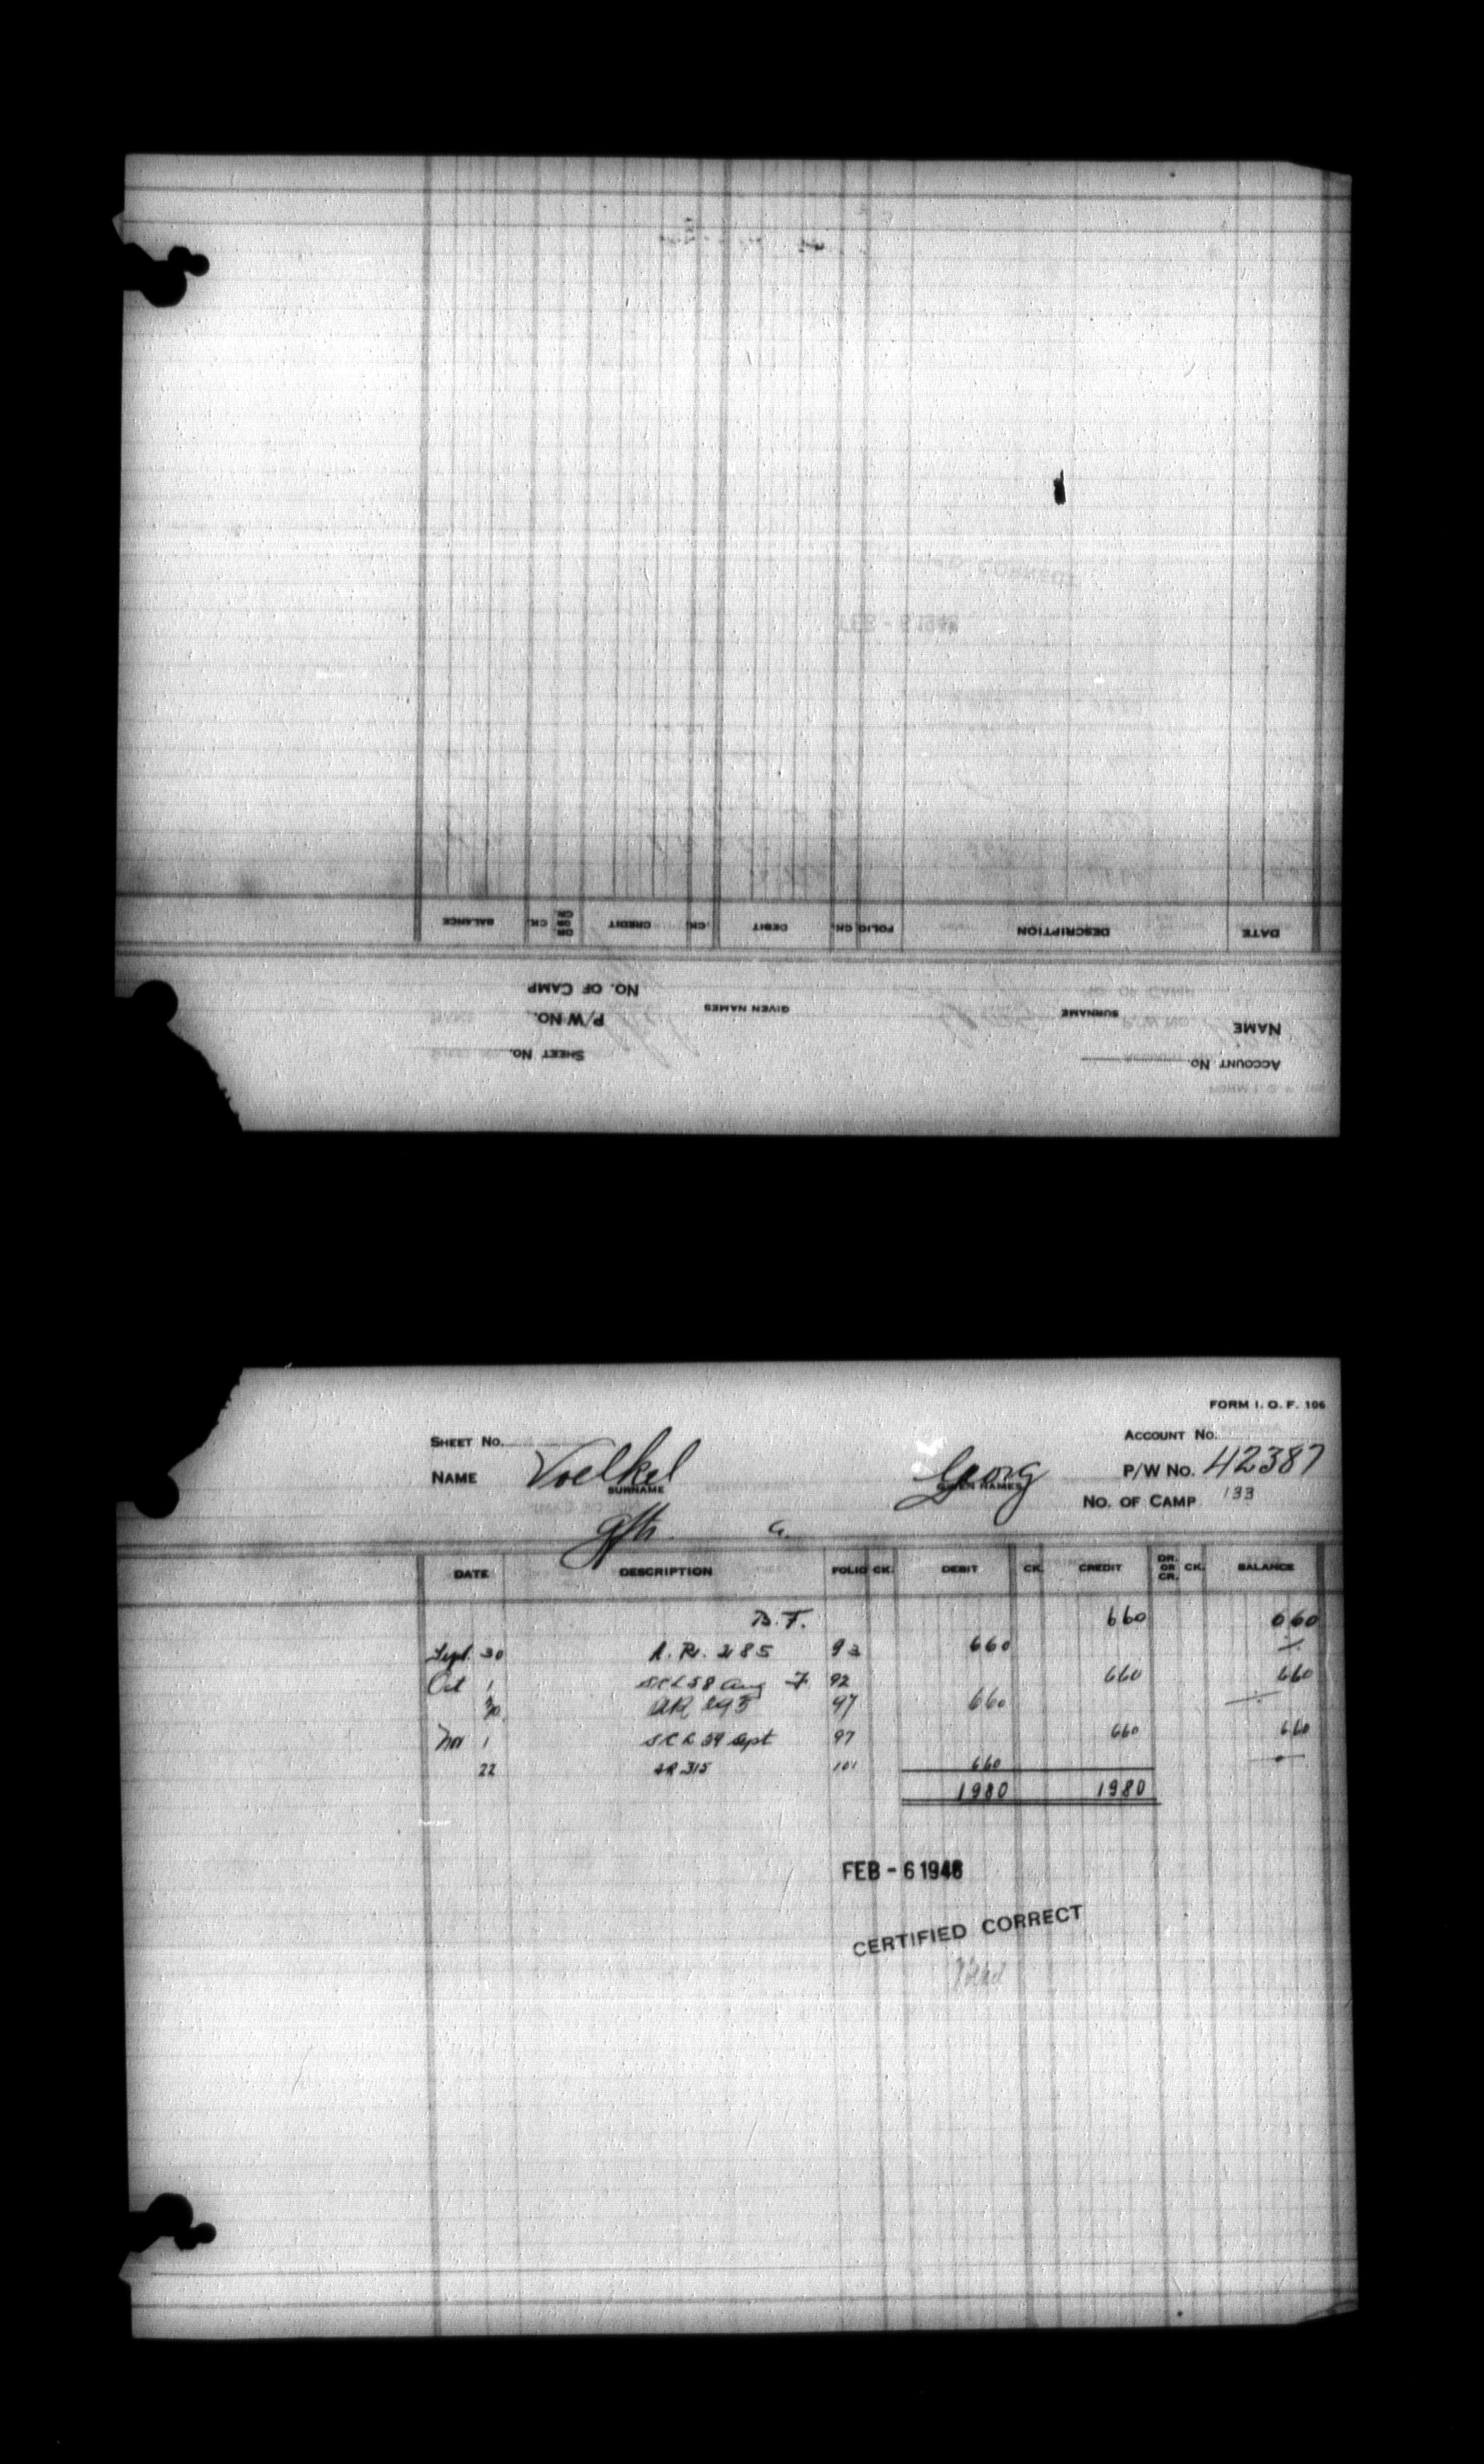 DATE DESCRIPTION FOLIO CK. DEBIT CK. CREDIT DR. OR CR. CK. BALANCE
NO. OF CAMP
GIVEN NAMES
P/W NO.
SURNAME
NAME
SHEET NO.
ACCOUNT NO.
FORM I. O. F. 106
SHEET NO. ACCOUNT NO.
NAME Voelkel Georg P/W NO. 42387
SURNAME GIVEN NAMES
NO. OF CAMP 133
Gftr. a.
DATE DESCRIPTION FOLIO CK. DEBIT CK. CREDIT DR. OR CR. CK. BALANCE
B. F. 660 660
Sept. 30 A.R. 285 93 660
Oct 1 SCL 58 Aug F 92 660 660
30 AR 295 97 660
Nov 1 S C L 59 Sept 97 660 660
22 AR 315 101 660
1980 1980
FEB - 6 1946
CERTIFIED CORRECT